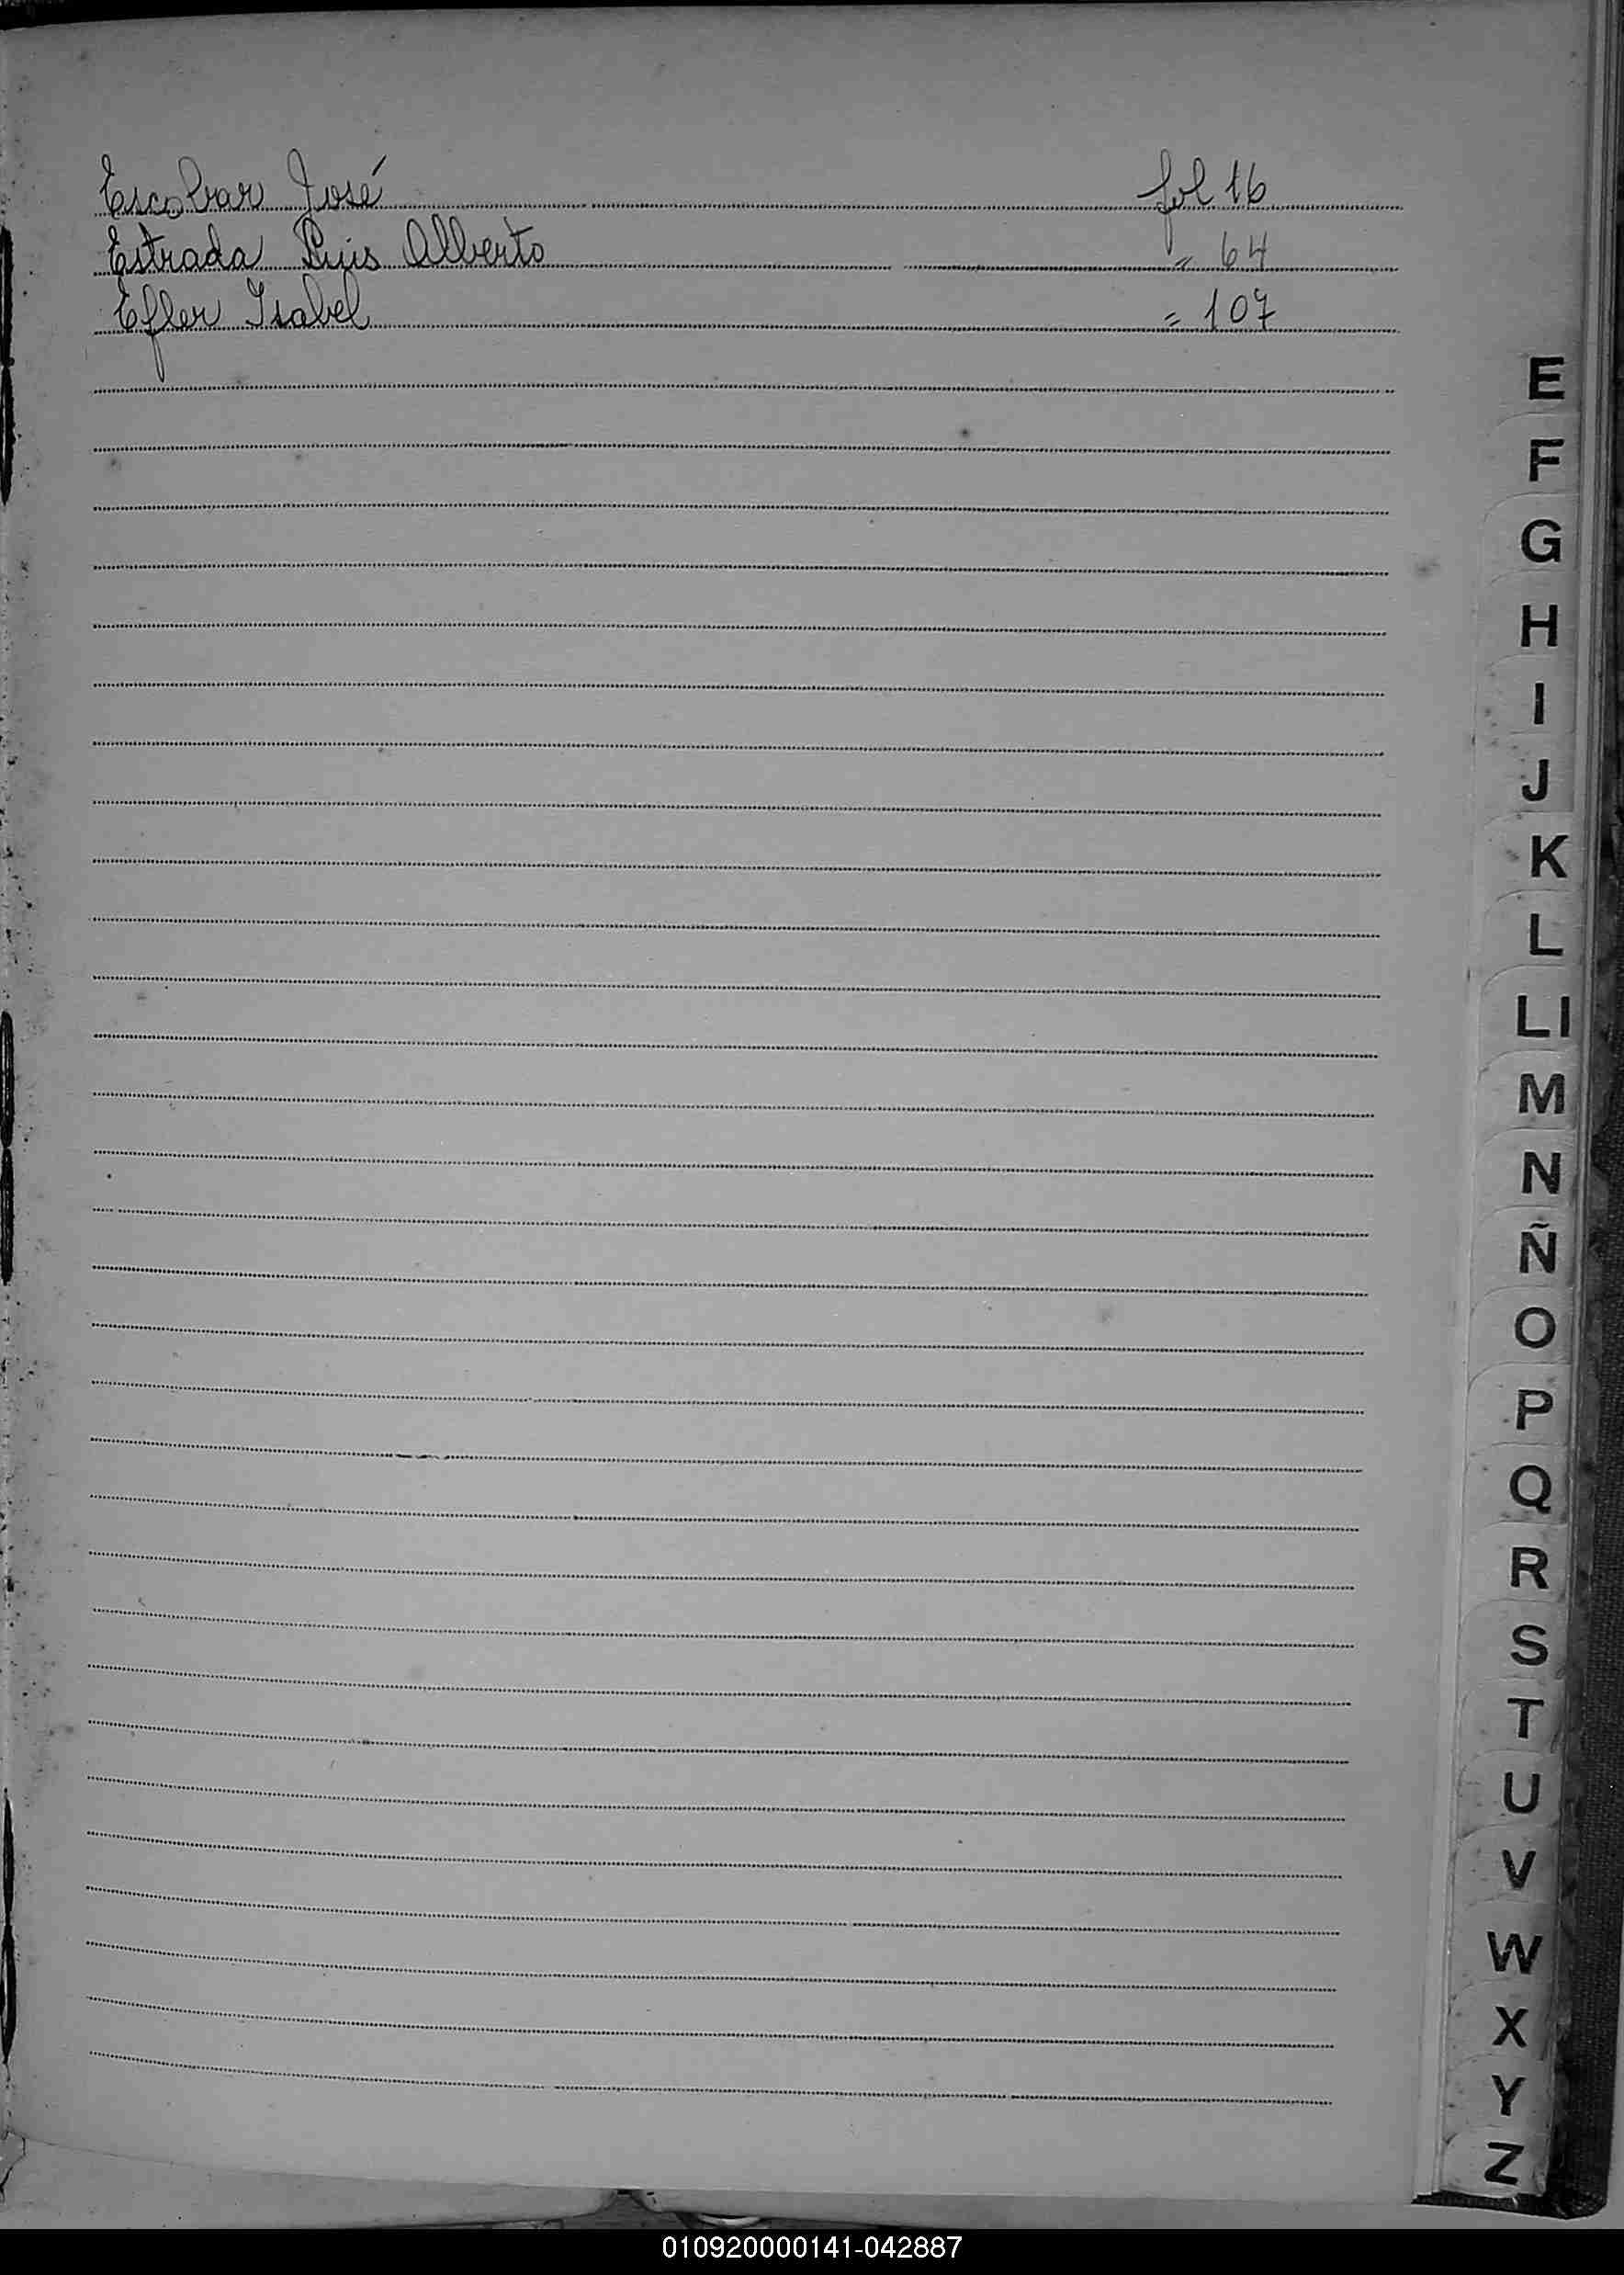 Escobar José fol 16
Estrada Luis Alberto = 64
Efler Isabel = 107
E
F
G
H
I
J
K
L
Ll
M
N
Ñ
O
P
Q
R
S
T
U
V
W
X
Y
Z
010920000141-042887